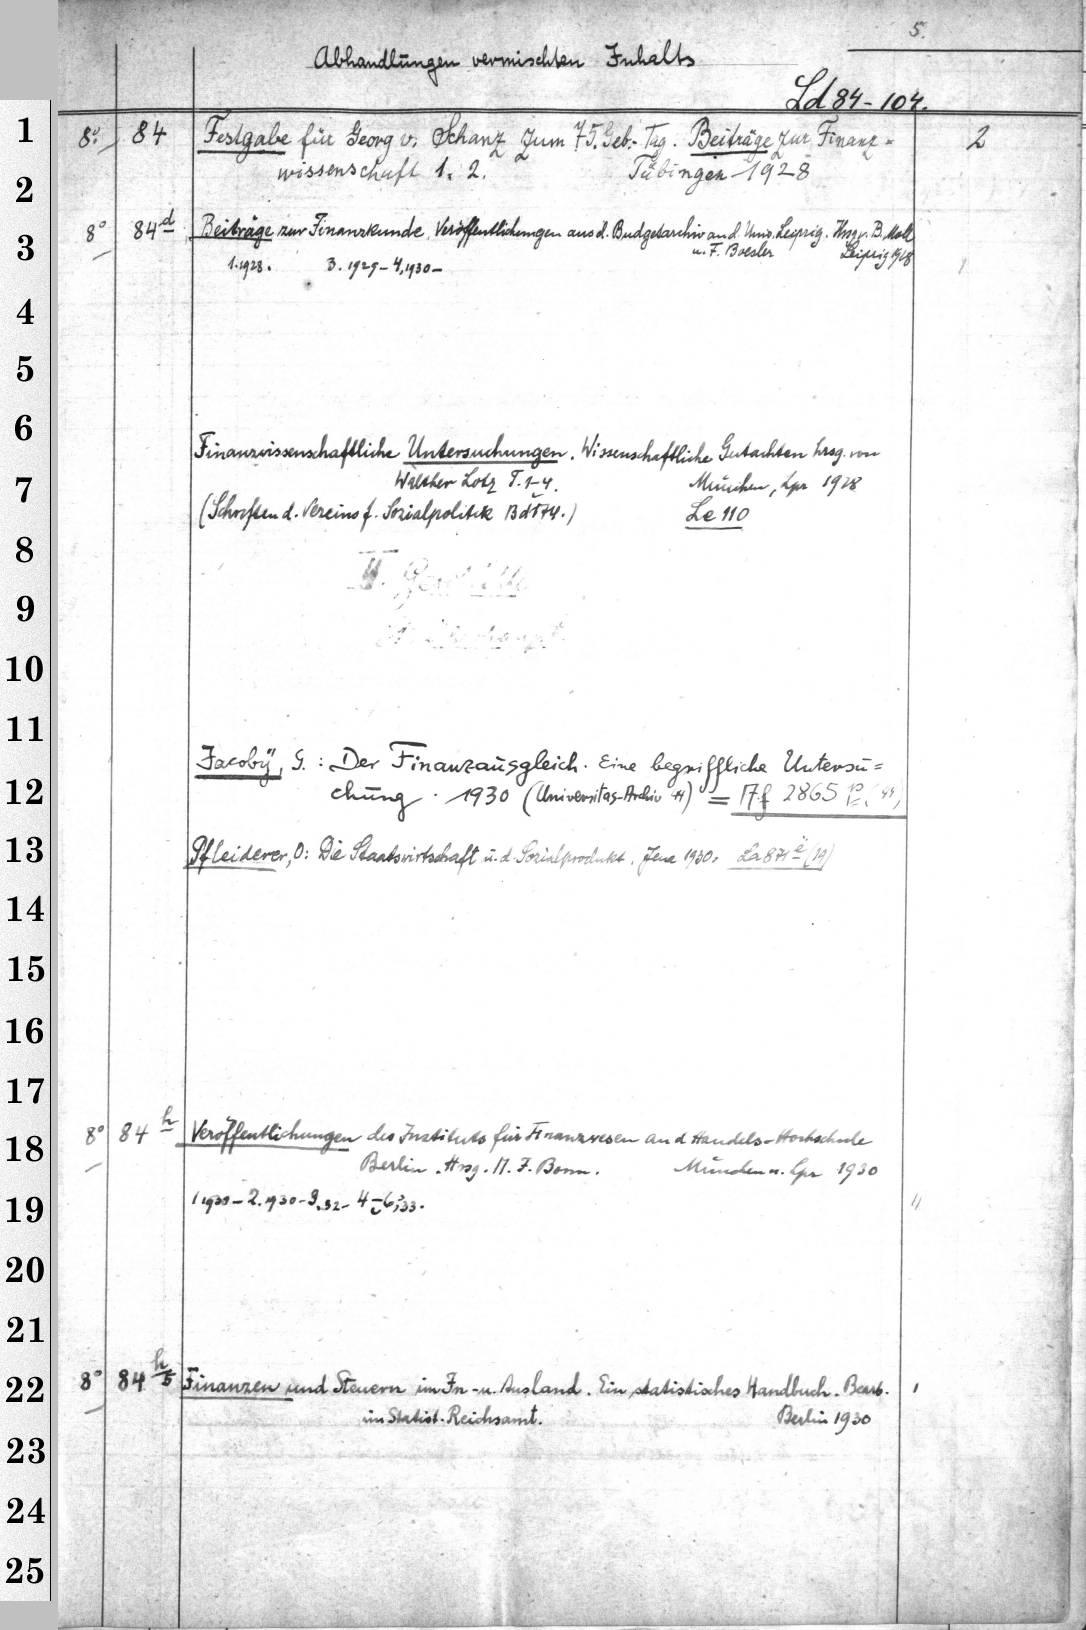 5.
Abhandlungen vermischten Inhalts
Ld 84-104.
1 8° 84 Festgabe für Georg v. Schanz zum 75. Geb.-Tag. Beiträge zur Finanz- 2
2 wissenschaft 1. 2. Tübingen 1928
3 8° 84d Beiträge zur Finanzkunde. Veröffentlichungen aus d. Budgetarchiv an d. Univ. Leipzig. Hsg. v. B. Moll
u. F. Boesler Leipzig 1928
1. 1928. 3. 1929 - 4, 1930 - 1
4
5
6 Finanzwissenschaftliche Untersuchungen. Wissenschaftliche Gutachten hrsg. von
7 Walther Lotz T. 1-4. München, Lpz 1928
(Schriften d. Vereins f. Sozialpolitik Bd 174.) Le 110
8
9
10
11
Jacoby, G.: Der Finanzausgleich. Eine begriffliche Untersu=
12 chung. 1930 (Universitas-Archiv 44) = Af 2865 p. (44)
13 Pfleiderer, O: Die Staatswirtschaft u. d. Sozialprodukt. Jena 1930. La 871 (19)
14
15
16
17
18 8° 84h Veröffentlichungen des Instituts für Finanzwesen an d Handels-Hochschule
Berlin. Hrsg. M. J. Bonn. München u. Lpz 1930
19 1 1930 - 2. 1930 - 3. 32 - 4-6, 33. 4
20
21
22 8° 84h/5 Finanzen und Steuern im In- u. Ausland. Ein statistisches Handbuch. Bearb. 1
im Statist. Reichsamt. Berlin 1930
23
24
25